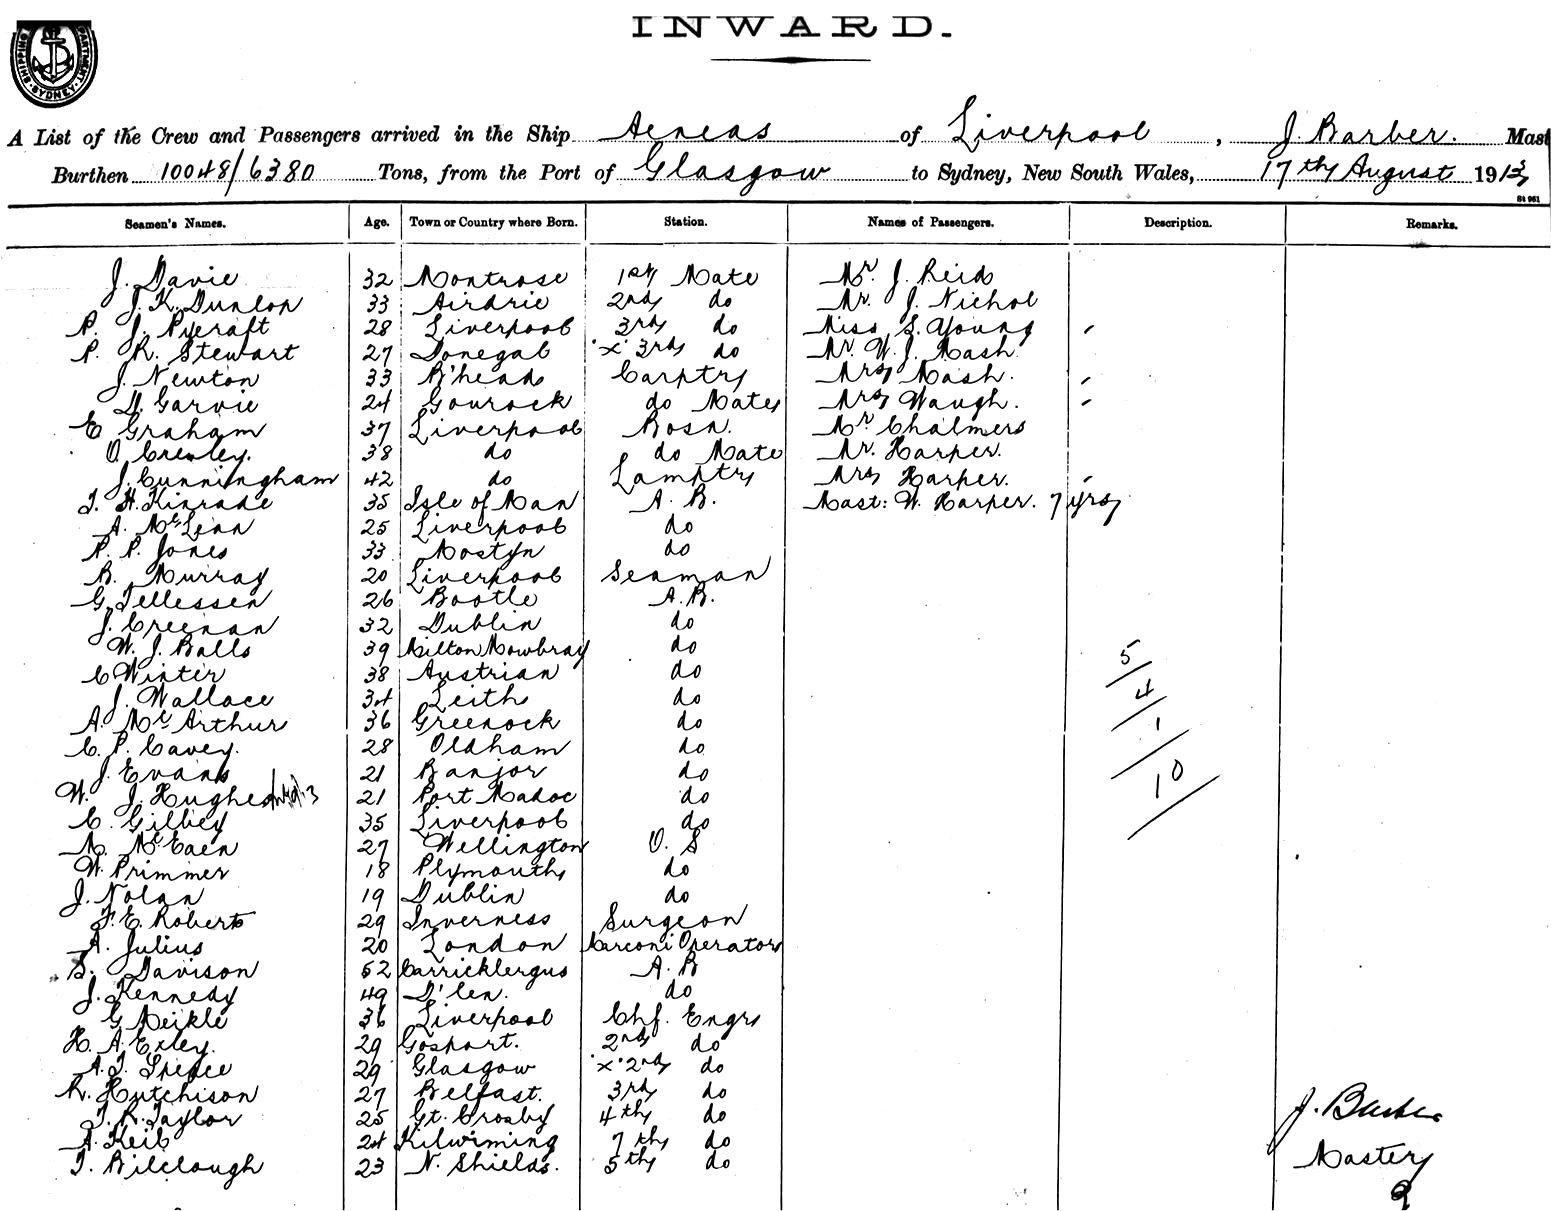 INWARD.
SHIPPING DEPARTMENT SYDNEY
A List of the Crew and Passengers arrived in the Ship Aeneas of Liverpool, J Barber. Mast
Burthen 10048/6380 Tons, from the Port of Glasgow to Sydney, New South Wales, 17th August 1913
St 961
Seamen's Names. Age. Town or Country where Born. Station. Names of Passengers. Description. Remarks.
J. Davie 32 Montrose 1st Mate Mr J. Reid
J. K. Dunlop 33 Airdrie 2nd do Mr. J. Nichol
P. J. Pycraft 28 Liverpool 3rd do Miss S. Young
P. R. Stewart 27 Donegal "x" 3rd do Mr. W. J. Mash
J. Newton 33 B'head Carptr Mrs Mash.
D. Garvie 24 Gourock do Mate Mrs Waugh.
E Graham 37 Liverpool Bosn. Mr Chalmers
O. Crewley. 38 do do Mate Mr. Harper.
J. Cunningham 42 do Lamptr Mrs Harper.
T. H. Kinrade 35 Isle of Man A. B. Mast: W. Harper. 7 yrs
A. McLean 25 Liverpool do
R. P. Jones 33 Mostyn do
B. Murray 20 Liverpool Seaman
G. Tellessen 26 Bootle A. B.
J. Creenan 32 Dublin do
W. J. Balls 39 Milton Mowbray do 5
C Winter 38 Austrian do 4
J. Wallace 34 Leith do
A. McArthur 36 Greenock do 1
C. P. Cavey. 28 Oldham do
J. Evans 21 Banjor do 10
W. J. Hughes 21 Port Madoc do
C. Gilbey 35 Liverpool do
N. McEaen 27 Wellington O. S
W. Primmer 18 Plymouth do
J. Nolan 19 Dublin do
F. E. Roberts 29 Inverness Surgeon
A. Julius 20 London Marconi Operator
S. Davison 52 Carricklergus A. B
J. Kennedy 49 D'len. do
G Meikle 36 Liverpool Chf. Engr
H. A. Exley. 29 Gosport. 2nd do
A. T. Spence 29 Glasgow "x" 2nd do
R. Hutchison 27 Belfast. 3rd do
T. R. Taylor 25 Gt. Crosby 4th do J. Barber
A. Keil 24 Kilwinning 7th do
T. Bilclough 23 N. Shields. 5th do Master